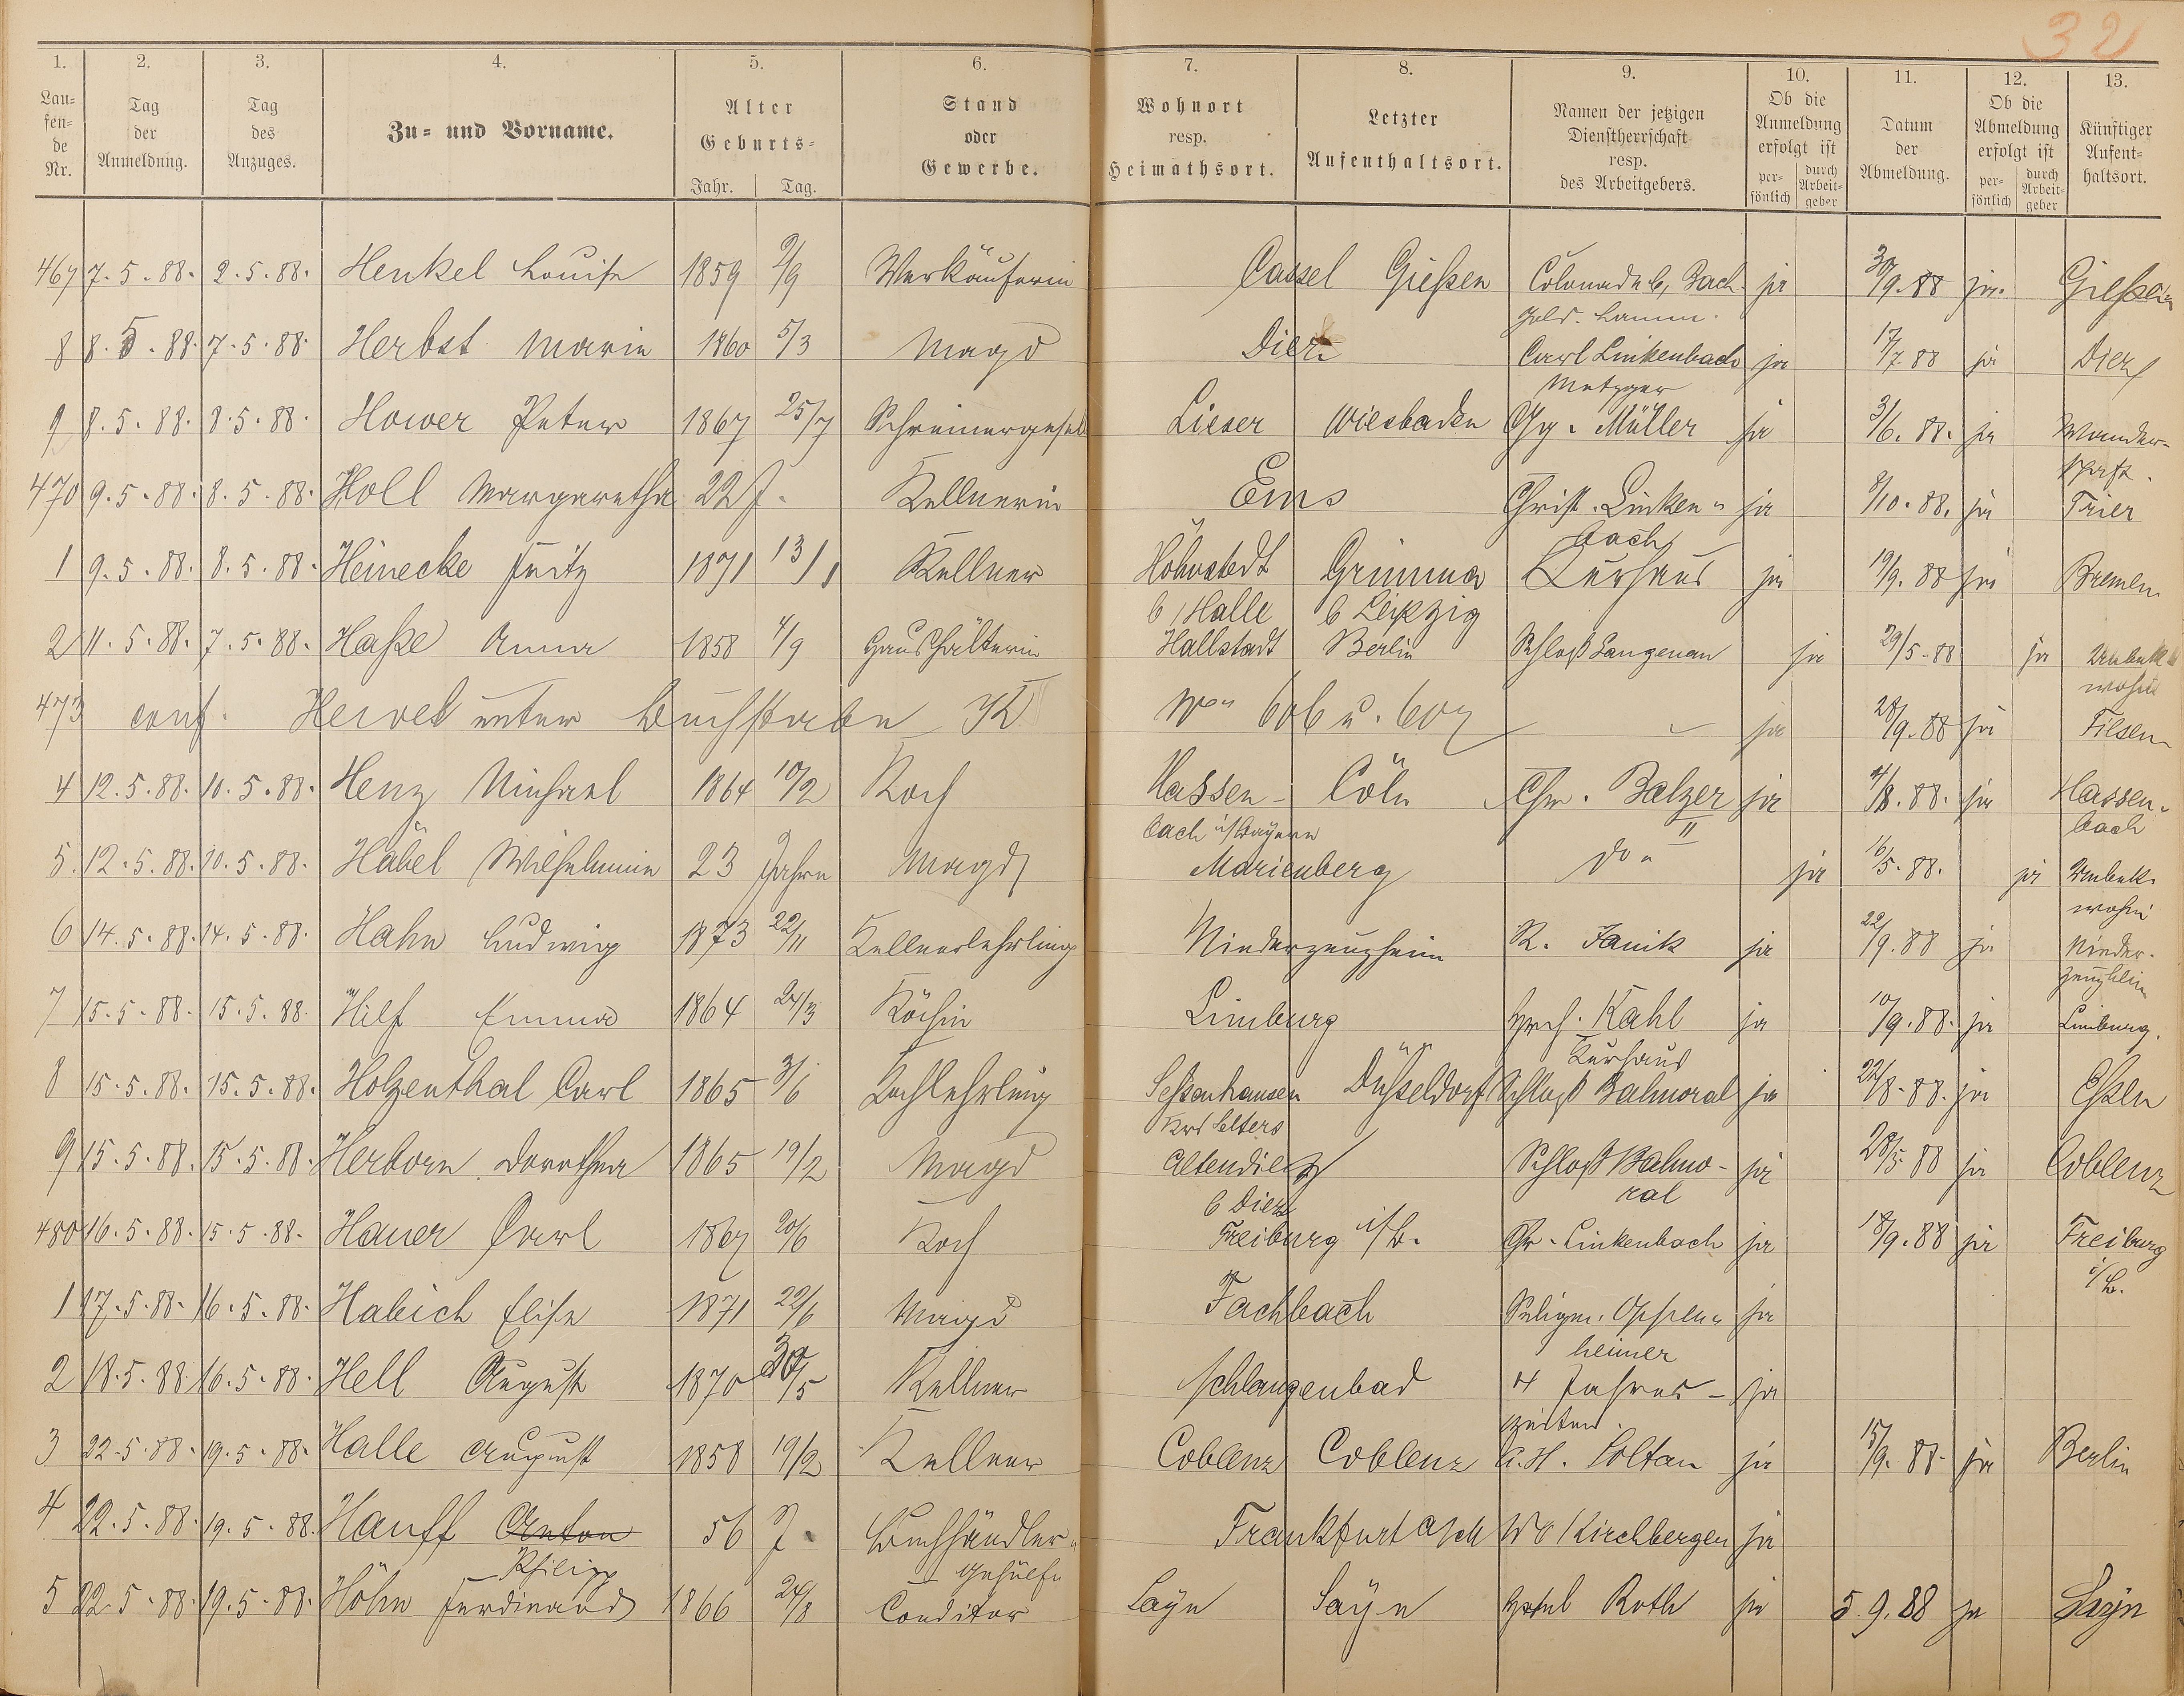 32
1. 2. 3. 4. 5. 6. 7. 8. 9. 10. 11. 12. 13.
Lau-fen-de Nr. | Tag der Anmeldung. | Tag des Anzuges. | Zu- und Vorname. | Alter Geburts- Jahr. Tag. | Stand oder Gewerbe. | Wohnort resp. Heimathsort. | Letzter Aufenthaltsort. | Namen der jetzigen Dienstherrschaft resp. des Arbeitgebers. | Ob die Anmeldung erfolgt ist per-sönlich durch Arbeit-geber | Datum der Abmeldung. | Ob die Abmeldung erfolgt ist per-sönlich durch Arbeit-geber | Künftiger Aufent-haltsort.
467 7.5.88. 2.5.88. Henkel Louise 1859 9/9 Verkäuferin Cassel Gießen Colonade 6, Bach ja 30/9.88 ja. Gießen
Gold. Lamm.
8 8.5.88. 7.5.88. Herbst Marie 1860 5/3 Magd Diez Carl Linkenbach ja 17/7.88 ja Diez
Metzger
9 8.5.88. 8.5.88. Hower Peter 1867 25/7 Schreinergesell Lieser Wiesbaden Gg. Müller ja 3/6.88. ja Wander-
schaft.
470 9.5.88. 8.5.88. Holl Margaretha 22 J. Kellnerin Ems Christ. Linken- ja 8/10.88. ja Trier
bach
1 9.5.88. 8.5.88. Heinecke Fritz 1871 13/1 Kellner Höhnstedt Grimma Kurhaus ja 19/9.88 ja Bremen
b/Halle b Leipzig
2 11.5.88. 7.5.88. Haße Anna 1858 4/9 Haushälterin Hallstadt Berlin Schloß Langenau ja 29/5.88 ja Unbek
wohin
473 conf. Hervet unter Buchstabe K 606 u. 607 ja 28/9.88 ja Filsen
4 12.5.88. 10.5.88. Henz Michael 1864 10/2 Koch Hassen- Cöln Chr. Balzer ja 4/8.88. ja Hassen-
bach i/Bayern II bach
5. 12.5.88. 10.5.88. Häbel Wilhelmine 23 Jahre Magd Marienberg do ja 16/5.88. ja Unbek.
wohin
6 14.5.88. 14.5.88. Hahn Ludwig 1873 22/11 Kellnerlehrling Niederzeuzheim R. Janik ja 22/9.88 ja Nieder-
zeuzheim
7 15.5.88. 15.5.88. Hilf Emma 1864 24/3 Köchin Limburg Hrch. Kahl ja 10/9.88. ja Limburg.
Kurhaus
8 15.5.88. 15.5.88. Holzenthal Carl 1865 3/6 Kochlehrling Seßenhausen Düsseldorf Schloß Balmoral ja 22/8.88. ja Eßen
Krs Selters
9 15.5.88. 15.5.88. Herborn Dorothea 1865 19/2 Magd Altendiez Schloß Balmo- ja 28/5 88 ja Coblenz
b Diez ral
480 16.5.88. 15.5.88. Hauer Carl 1867 20/6 Koch Freiburg i/B. Chr. Linkenbach ja 18/9.88 ja Freiburg
i/B.
1 17.5.88. 16.5.88. Habich Elise 1871 22/6 Magd Fachbach Seligm. Oppen- ja
heimer
2 18.5.88. 16.5.88. Hell August 1870 30/5 Kellner Schlangenbad 4 Jahres- ja
zeiten.
3 22.5.88. 19.5.88. Halle August 1858 19/2 Kellner Coblenz Coblenz A.H. Soltau ja 15/9.88. ja Berlin
4 22.5.88. 19.5.88. Hauff Anton 56 J. Buchhändler- Frankfurt Kirchberger ja
Philipp gehülfe
5 22.5.88. 19.5.88. Höhn Ferdinand 1866 24/8 Conditor Sayn Sayn Hotel Roth ja 5.9.88 ja Sayn